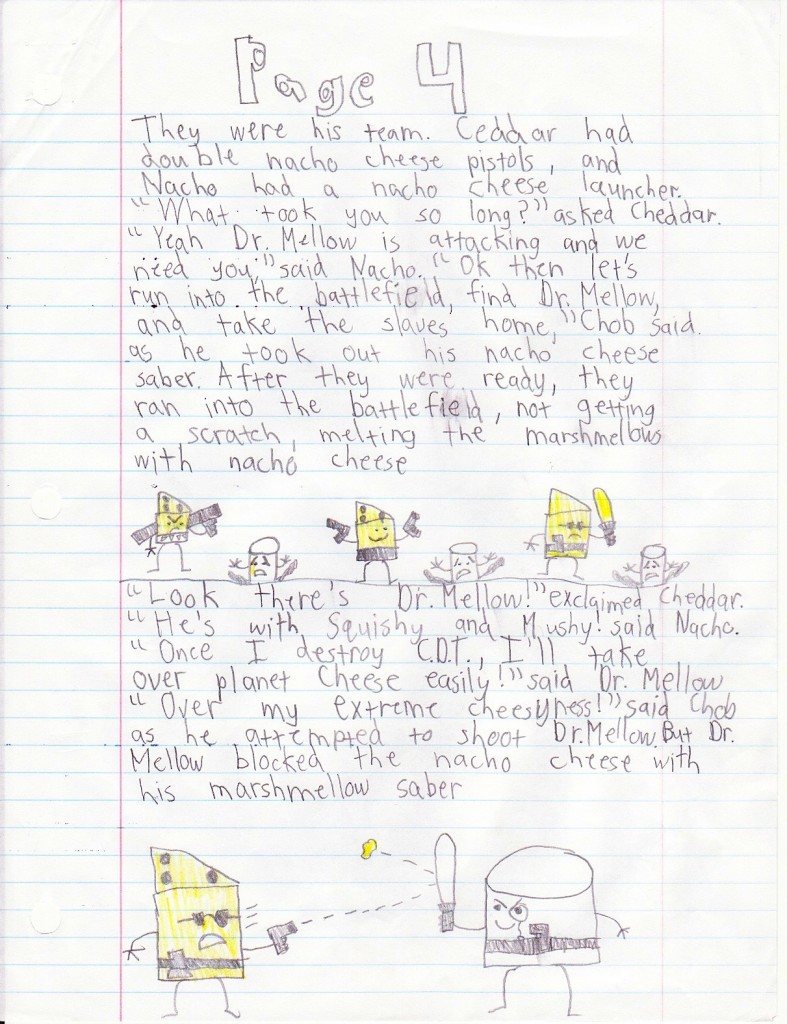 Page 4
They were his team. Ceddar had
double nacho cheese pistols, and
Nacho had a nacho cheese launcher.
"What took you so long?" asked Cheddar.
"Yeah Dr. Mellow is attacking and we
need you," said Nacho. "Ok then let's
run into the battlefield, find Dr. Mellow,
and take the slaves home," Chob said.
as he took out his nacho cheese
saber. After they were ready, they
ran into the battlefield, not getting
a scratch, melting the marshmellows
with nacho cheese
"Look there's Dr. Mellow!" exclaimed Cheddar.
"He's with Squishy and Mushy! said Nacho.
"Once I destroy C.D.T., I'll take
over planet Cheese easily!" said Dr. Mellow
"Over my extreme cheesyness!" said Chob
as he attempted to shoot Dr. Mellow. But Dr.
Mellow blocked the nacho cheese with
his marshmellow saber